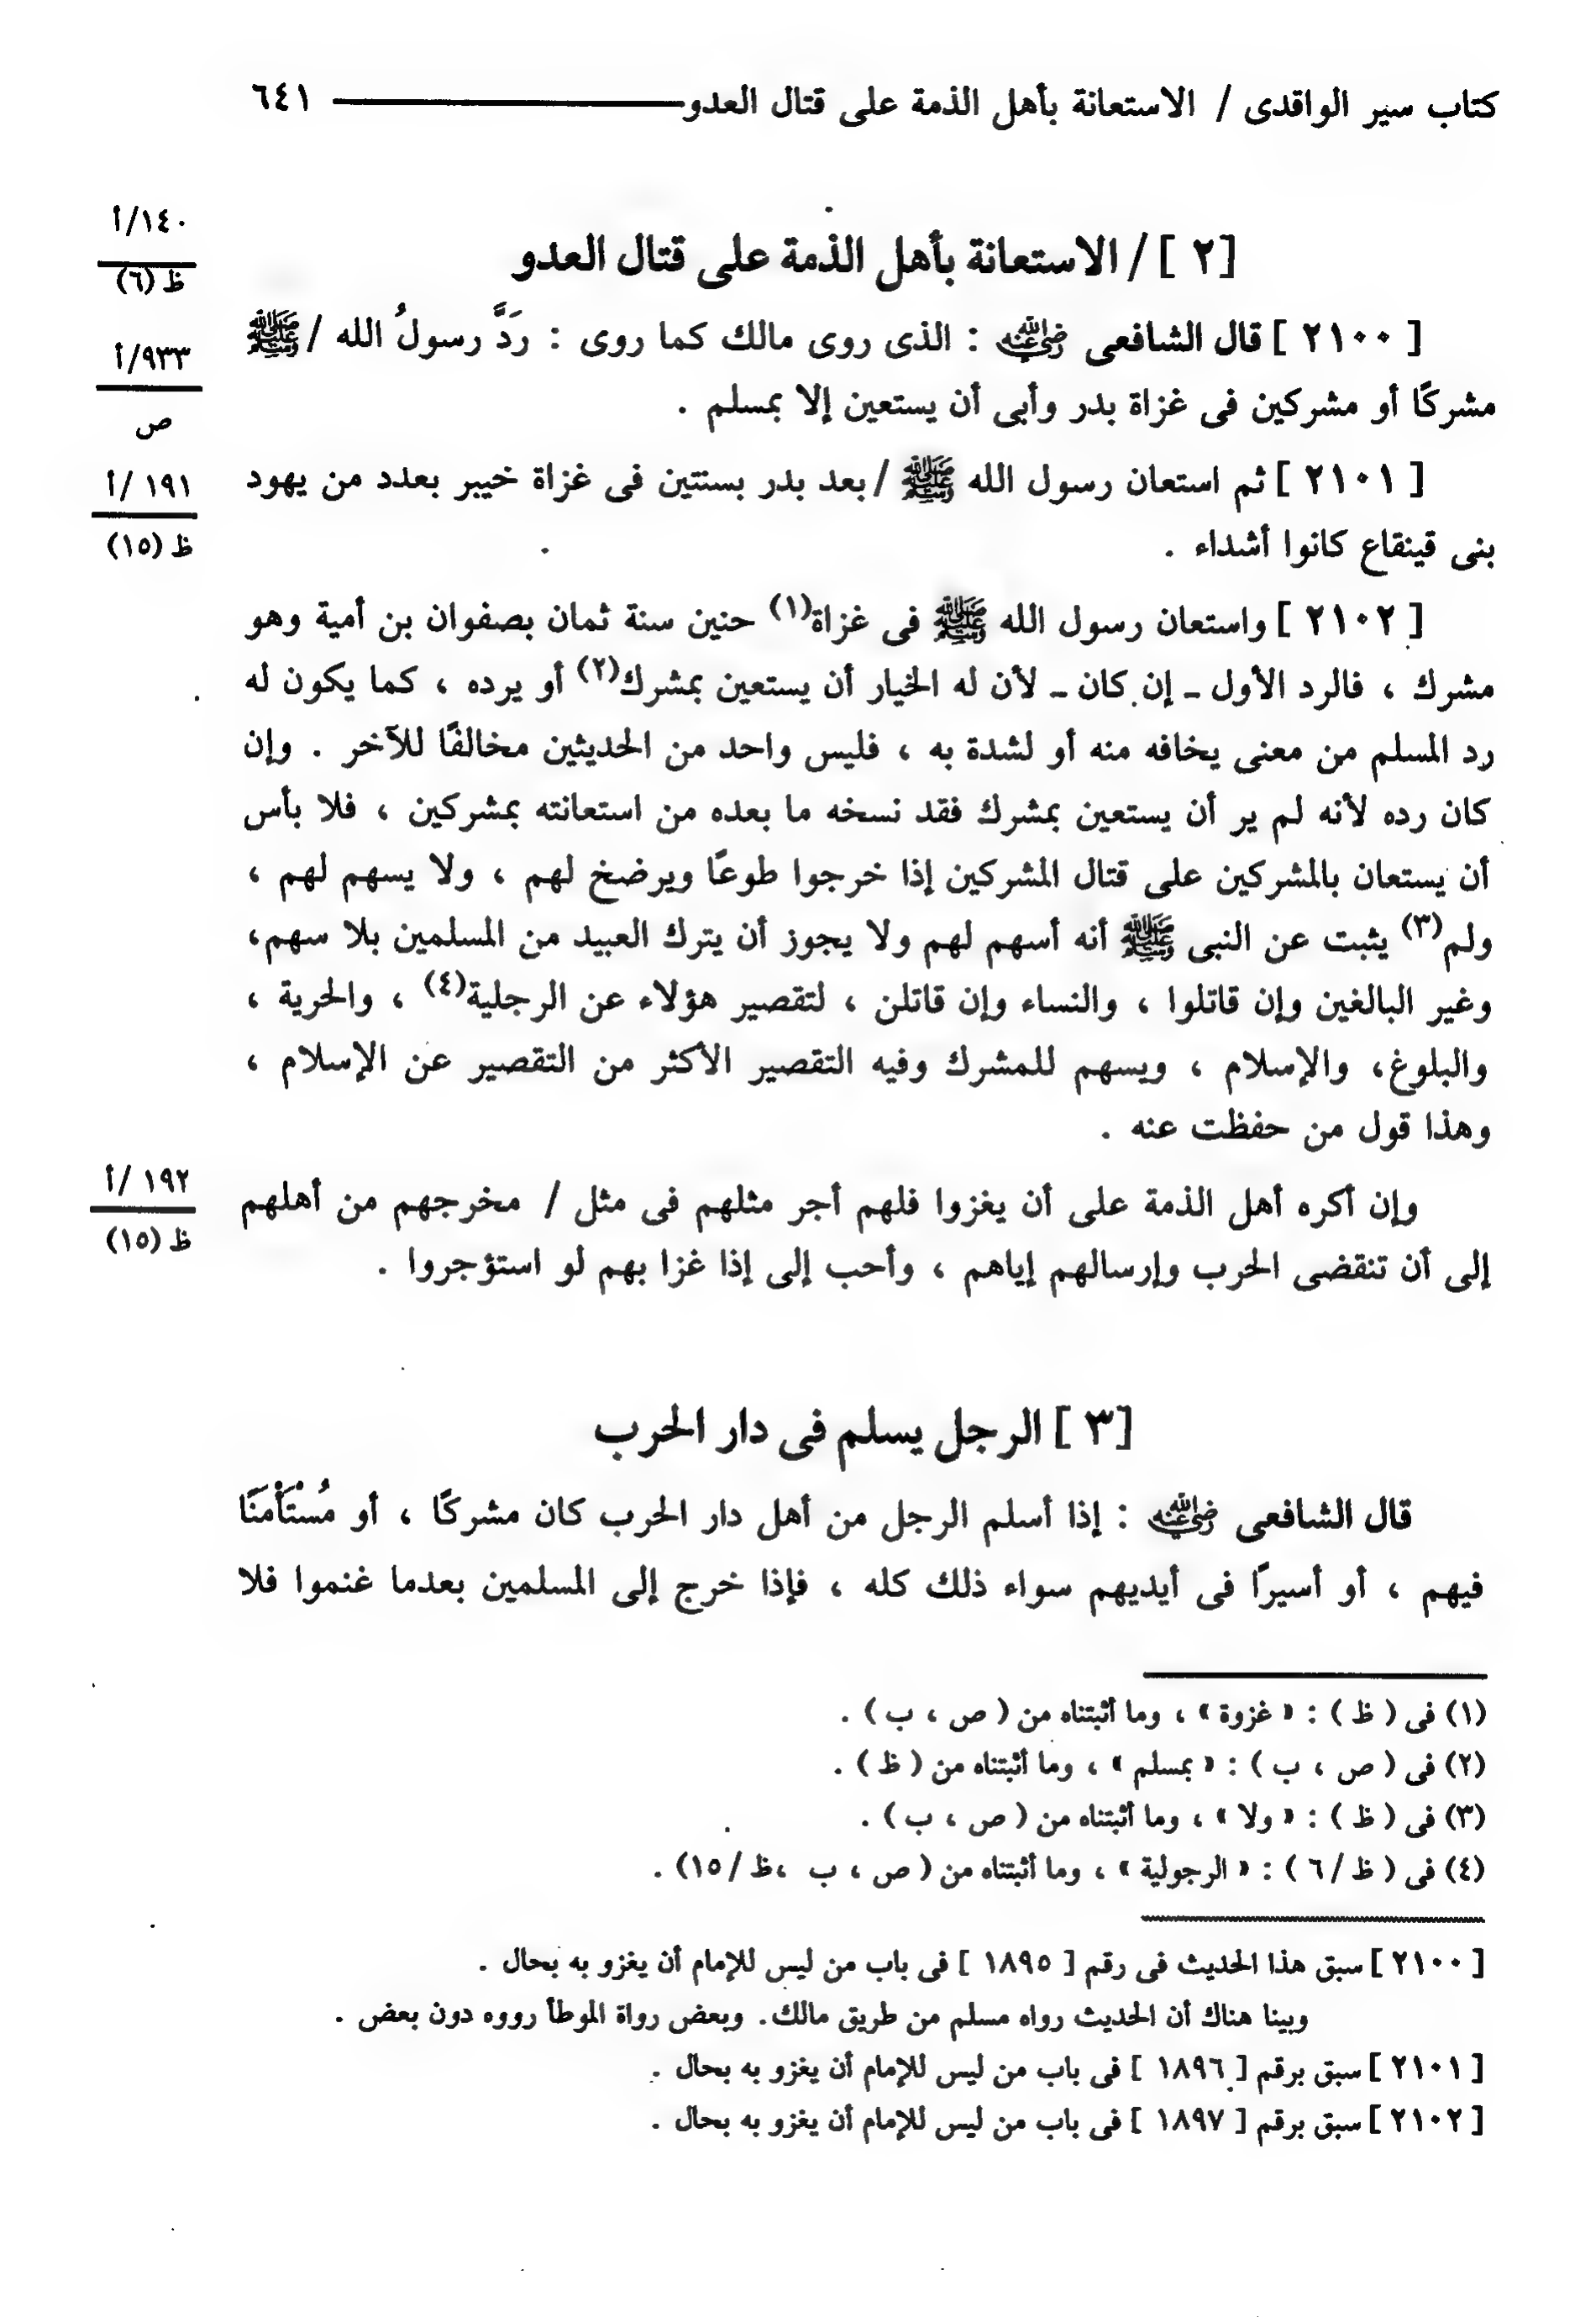 كتاب سير الواقدى / الاستعانة بأهل الذمة على قتال العدو ٦٤١
١٤٠/أ
ظ (٦)
[٢ ] / الاستعانة بأهل الذمة على قتال العدو
[ ٢١٠٠ ] قال الشافعى رضي الله عنه : الذى روى مالك كما روى : رَدَّ رسولُ الله / ﷺ
٩٣٣/أ
ص
مشركًا أو مشركين فى غزاة بدر وأبى أن يستعين إلا بمسلم .
[ ٢١٠١ ] ثم استعان رسول الله ﷺ / بعد بدر بسنتين فى غزاة خيبر بعدد من يهود
١٩١ /أ
ظ (١٥)
بنى قينقاع كانوا أشداء .
[ ٢١٠٢ ] واستعان رسول الله ﷺ فى غزاة(١) حنين سنة ثمان بصفوان بن أمية وهو
مشرك ، فالرد الأول ـ إن كان ـ لأن له الخيار أن يستعين بمشرك(٢) أو يرده ، كما يكون له
رد المسلم من معنى يخافه منه أو لشدة به ، فليس واحد من الحديثين مخالفًا للآخر . وإن
كان رده لأنه لم ير أن يستعين بمشرك فقد نسخه ما بعده من استعانته بمشركين ، فلا بأس
أن يستعان بالمشركين على قتال المشركين إذا خرجوا طوعًا ويرضخ لهم ، ولا يسهم لهم ،
ولم(٣) يثبت عن النبى ﷺ أنه أسهم لهم ولا يجوز أن يترك العبيد من المسلمين بلا سهم،
وغير البالغين وإن قاتلوا ، والنساء وإن قاتلن ، لتقصير هؤلاء عن الرجلية(٤) ، والحرية ،
والبلوغ، والإسلام ، ويسهم للمشرك وفيه التقصير الأكثر من التقصير عن الإسلام ،
وهذا قول من حفظت عنه .
وإن أكره أهل الذمة على أن يغزوا فلهم أجر مثلهم فى مثل / مخرجهم من أهلهم
١٩٢ /أ
ظ (١٥)
إلى أن تنقضى الحرب وإرسالهم إياهم ، وأحب إلى إذا غزا بهم لو استؤجروا .
[٣ ] الرجل يسلم فى دار الحرب
قال الشافعى رضي الله عنه : إذا أسلم الرجل من أهل دار الحرب كان مشركًا ، أو مُسْتَأْمَنًا
فيهم ، أو أسيرًا فى أيديهم سواء ذلك كله ، فإذا خرج إلى المسلمين بعدما غنموا فلا
(١) فى ( ظ ) : « غزوة » ، وما أثبتناه من ( ص ، ب ) .
(٢) فى ( ص ، ب ) : « بمسلم » ، وما أثبتناه من ( ظ ) .
(٣) فى ( ظ ) : « ولا » ، وما أثبتناه من ( ص ، ب ) .
(٤) فى ( ظ / ٦ ) : « الرجولية » ، وما أثبتناه من ( ص ، ب ،ظ / ١٥) .
[ ٢١٠٠ ] سبق هذا الحديث فى رقم [ ١٨٩٥ ] فى باب من ليس للإمام أن يغزو به بحال .
وبينا هناك أن الحديث رواه مسلم من طريق مالك. وبعض رواة الموطأ رووه دون بعض .
[ ٢١٠١ ] سبق برقم [ ١٨٩٦ ] فى باب من ليس للإمام أن يغزو به بحال .
[ ٢١٠٢ ] سبق برقم [ ١٨٩٧ ] فى باب من ليس للإمام أن يغزو به بحال .